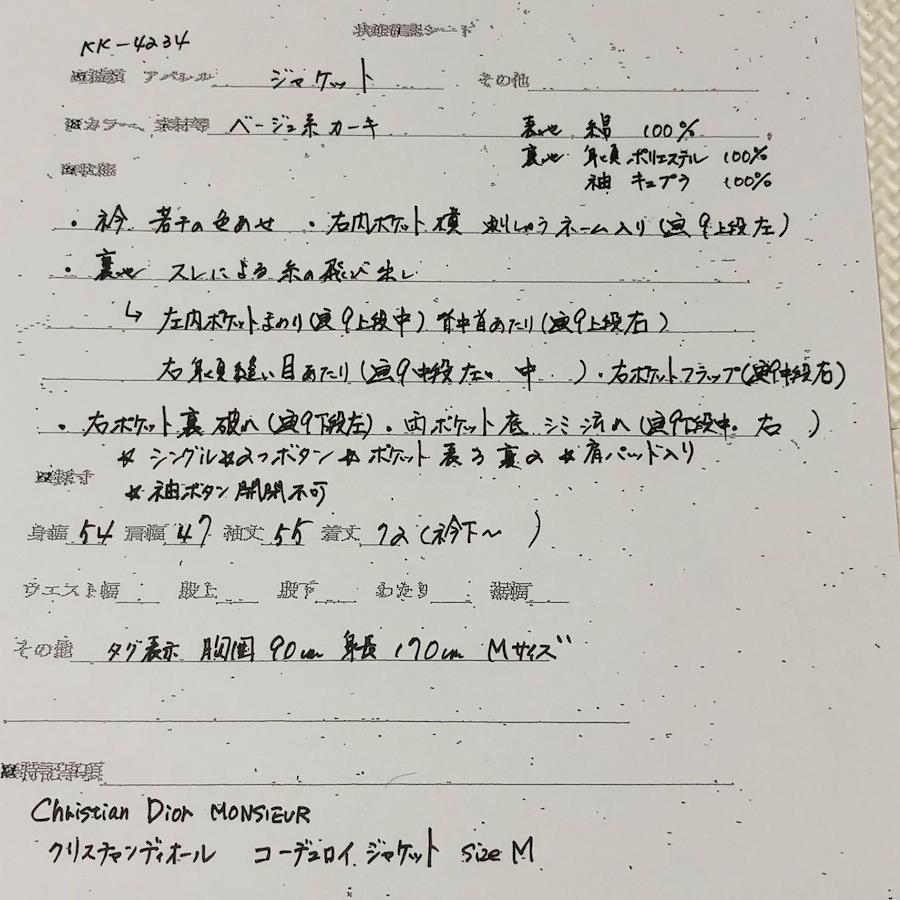 状態確認シート
KK-4234
■種類 アパレル ジャケット その他
■カラー、素材等 ベージュ系カーキ 表地 綿 100%
裏地 身頃 ポリエステル 100%
袖 キュプラ 100%
■状態
・衿 若干の色あせ ・右内ポケット横 刺しゅうネーム入り(画9上段左)
・裏地 スレによる糸の飛び出し
↳ 左内ポケットまわり(画9上段中)背中首あたり(画9上段右)
右身頃縫い目あたり(画9中段左・中 )・右ポケットフラップ(画9中段右)
・右ポケット裏 破れ(画9下段左)・両ポケット底 シミ汚れ(画9下段中・右 )
* シングル*2つボタン*ポケット 表3 裏2 *肩パッド入り
■採寸 *袖ボタン開閉不可
身幅 54 肩幅 47 袖丈 55 着丈 72(衿下~ )
ウエスト幅 股上 股下 わたり 裾幅
その他 タグ表示 胸囲 90cm 身長 170cm Mサイズ
■特記事項
Christian Dior MONSIEUR
クリスチャンディオール コーデュロイ ジャケット size M